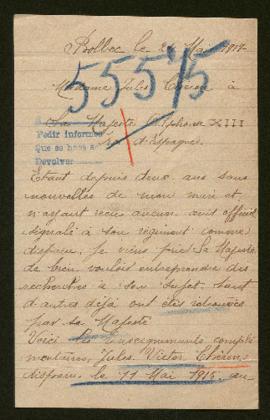 Bolbec le 2 Mai 1917
Madame Jules à
55515
Sa Majesté Alphonse XIII
Pedir informes
Roi d'Espagne
Que se hace
Devolver
Etant depuis deux ans sans
nouvelles de mon mari et
n'ayant reçu aucun avis officiel
signalé à son régiment comme
disparu, je viens prier Sa Majesté
de bien vouloir entreprendre des
recherches à son sujet, tant
d'autres déjà ont été retrouvés
par Sa Majesté
Voici renseignements complé
mentaires, Jules Victor
disparu le 11 Mai 1915 au